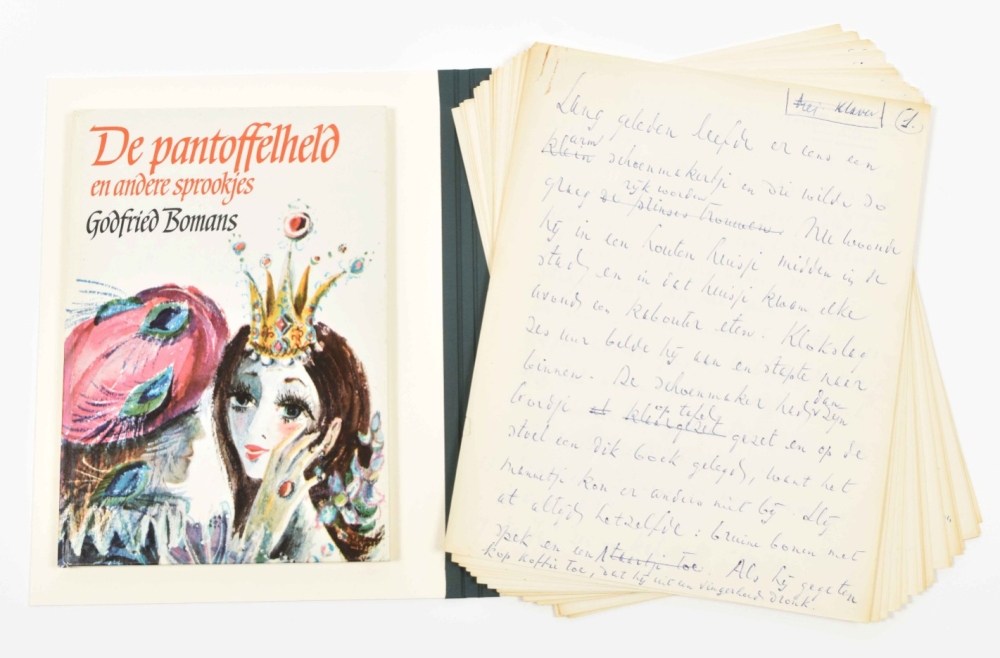 De pantoffelheld
en andere sprookjes
Godfried Bomans
Klaver 1.
Lang geleden leefde er eens een
klein arm schoenmakertje en die wilde zo
graag de prinses trouwen. rijk worden. Nu woonde
hij in een houten huisje midden in de
stad, en in dat huisje kwam elke
avond een kabouter eten. Klokslag
zes uur belde hij aan en stapte naar
binnen. De schoenmaker had dan zijn
bordje klaargezet op tafel gezet en op de
stoel een dik boek gelegd, want het
mannetje kon er anders niet bij. Hij
at altijd hetzelfde: bruine bonen met
spek en een taartje toe. Als hij gegeten
kop koffie toe, wat hij uit een vingerhoed dronk.